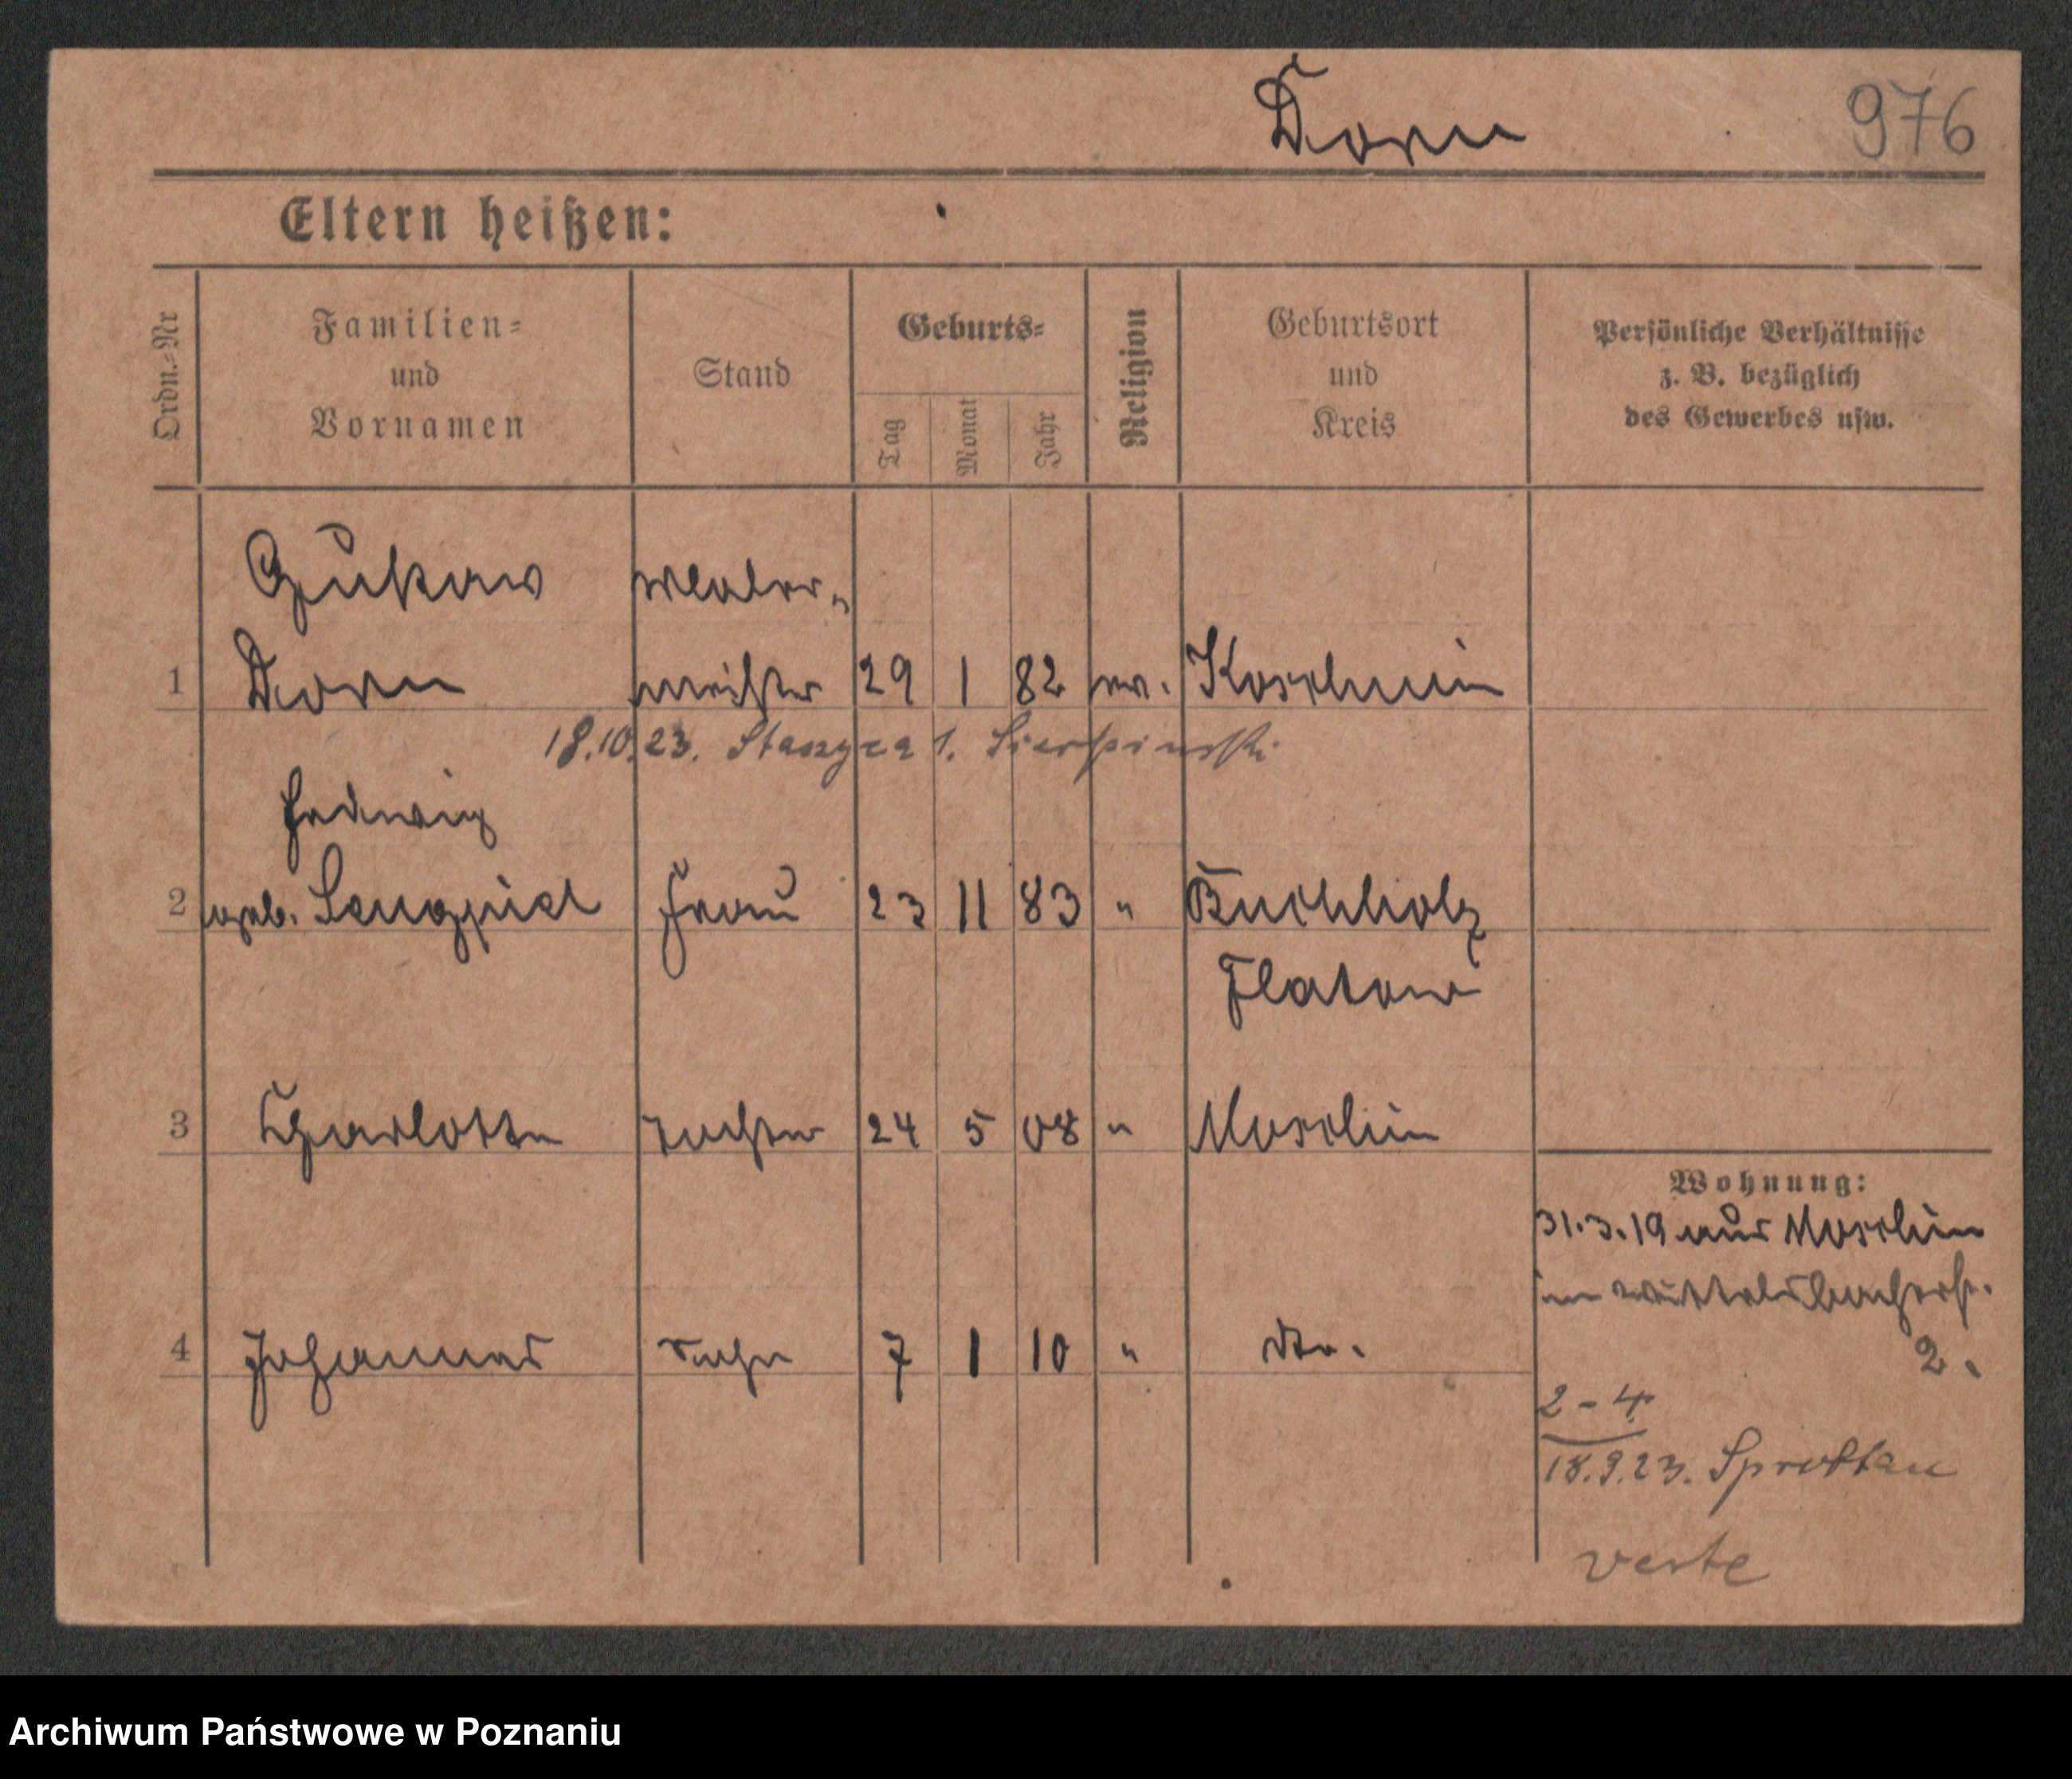 Dorn
976
Eltern heißen:
Ordn.-Nr
Familien-
und
Vornamen
Stand
Geburts-
Tag
Monat
Jahr
Religion
Geburtsort
und
Kreis
Persönliche Verhältnisse
z. B. bezüglich
des Gewerbes usw.
Gustav Maler-
1 Dorn meister 29 1 82 ev. Koschmin
18.10.23. Staszyca 1. Sierpinski
Hedwig
2 geb. Frau 23 11 83 " Buchholz
Flatow
3 Charlotte Tochter 24 5 08 " Moschin
Wohnung:
31.3.19 aus Moschin
in Wittelsbacherstr.
2.
4 Johannes Sohn 7 1 10 " dto.
2-4
18.9.23. Sprottau
Archiwum Państwowe w Poznaniu